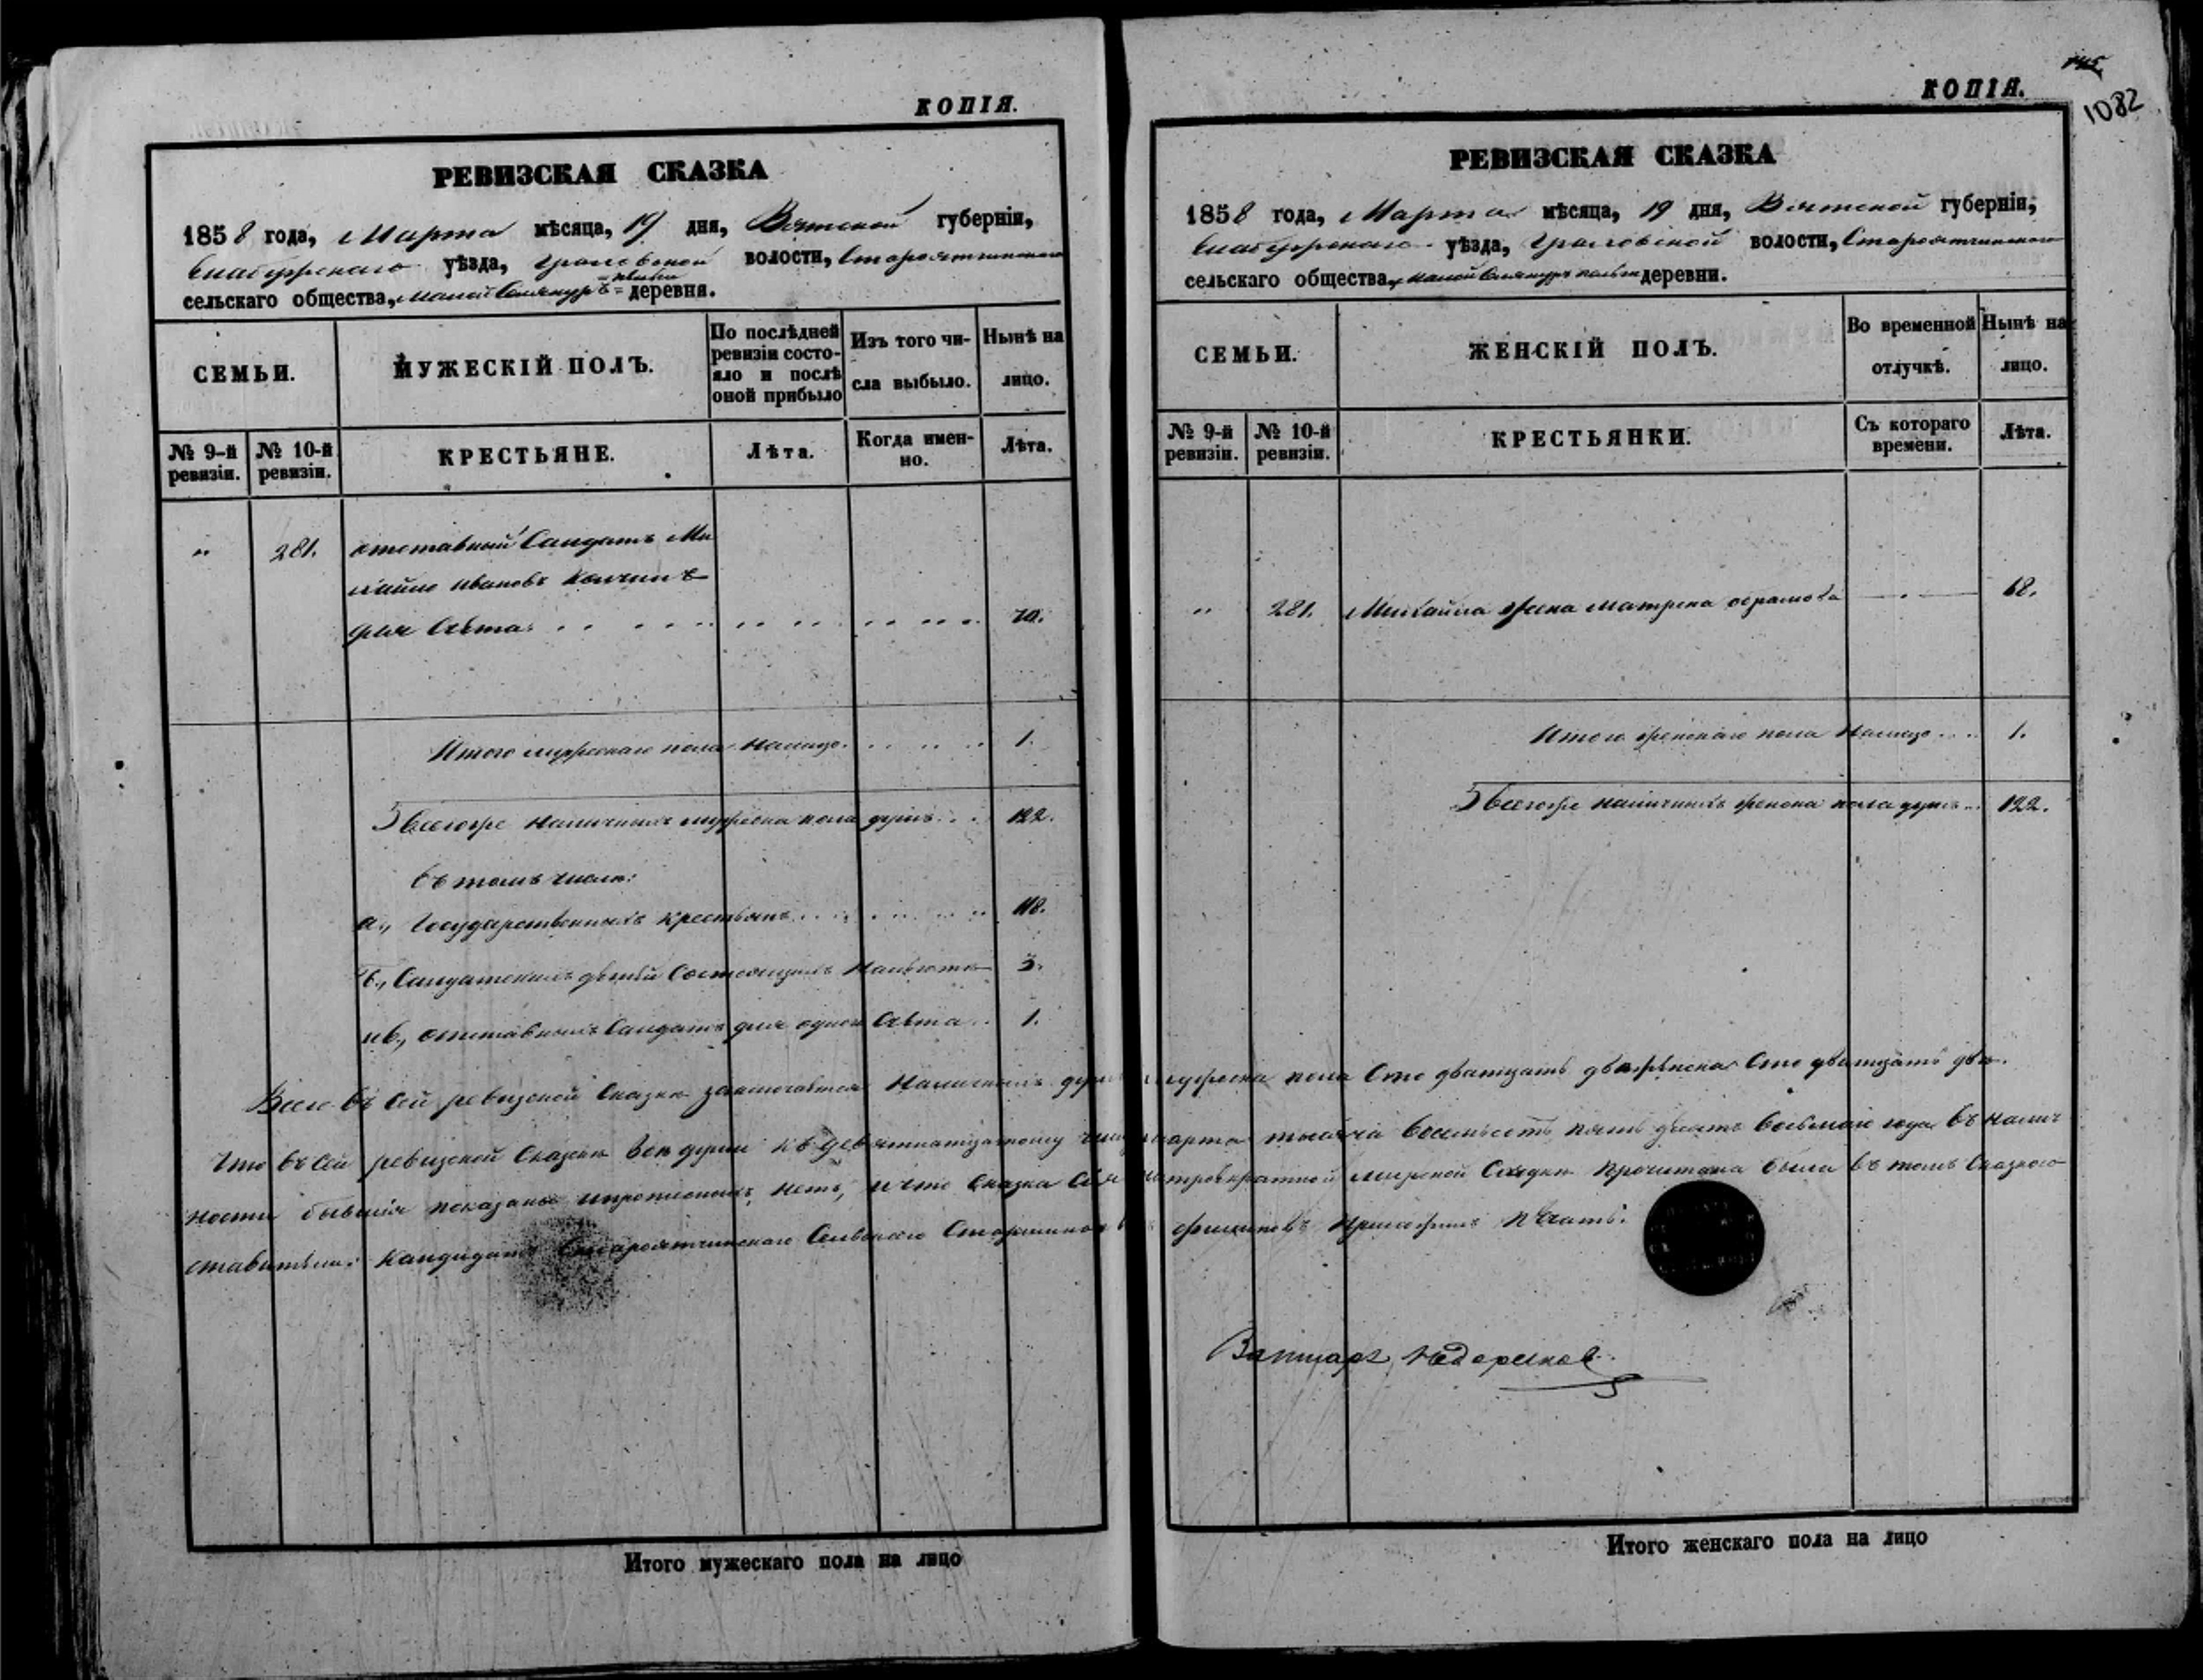 КОПІЯ.
РЕВИЗСКАЯ СКАЗКА
1858 года, Марта мѣсяца, 19 дня, Вятской губерніи,
Елабужскаго уѣзда, Граховской волости, Староятчинскаго
сельскаго общества, Малой деревня.
СЕМЬИ.
МУЖЕСКІЙ ПОЛЪ.
По послѣдней ревизіи состо-
яло и послѣ оной прибыло
Изъ того чи-
сла выбыло.
Нынѣ на
лицо.
№ 9-й ревизіи.
№ 10-й ревизіи.
КРЕСТЬЯНЕ.
Лѣта.
Когда имен-
но.
Лѣта.
„ 281. отставный Салдатъ Ми
хайло Ивановъ
для Счета 70.
Итого мужескаго пола налицо. 1.
А всегоже наличныхъ мужеска пола душъ 122.
Въ томъ числѣ:
а., Государственныхъ крестьянъ 118.
б., Салдатскихъ дѣтей Состоящихъ 3.
ив., отставныхъ Салдатъ для одного Счета 1.
КОПІЯ.
1082
РЕВИЗСКАЯ СКАЗКА
1858 года, Марта мѣсяца, 19 дня, Вятской губерніи,
Елабужскаго уѣзда, Граховской волости, Староятчинскаго
сельскаго общества, малой деревни.
СЕМЬИ.
ЖЕНСКІЙ ПОЛЪ.
Во временной
отлучкѣ.
Нынѣ на
лицо.
№ 9-й ревизіи.
№ 10-й ревизіи.
КРЕСТЬЯНКИ.
Съ котораго
времени.
Лѣта.
„ 281. Михайла жена Матрена 68.
Итого женскаго пола налицо 1.
А всегоже наличныхъ женска пола душъ 122.
Всего въ сей ревизской Сказкѣ заключается Наличныхъ душъ мужеска пола Сто дватцать два женска Сто дватцать двѣ.
Что въ Сей ревизской Сказкѣ Все души къ девятнатцатому числу марта тысяча восемьсотъ пять десятъ восьмаго года въ налич
ности бывшія показаны и прописныхъ нетъ, и что Сказка Сія на мирской Сходкѣ Прочитана была въ томъ Сказко
Кандидатъ Староятчинскаго Сельскаго Старшины Филиповъ Приложилъ Печать.
Итого мужескаго пола на лицо
Итого женскаго пола на лицо